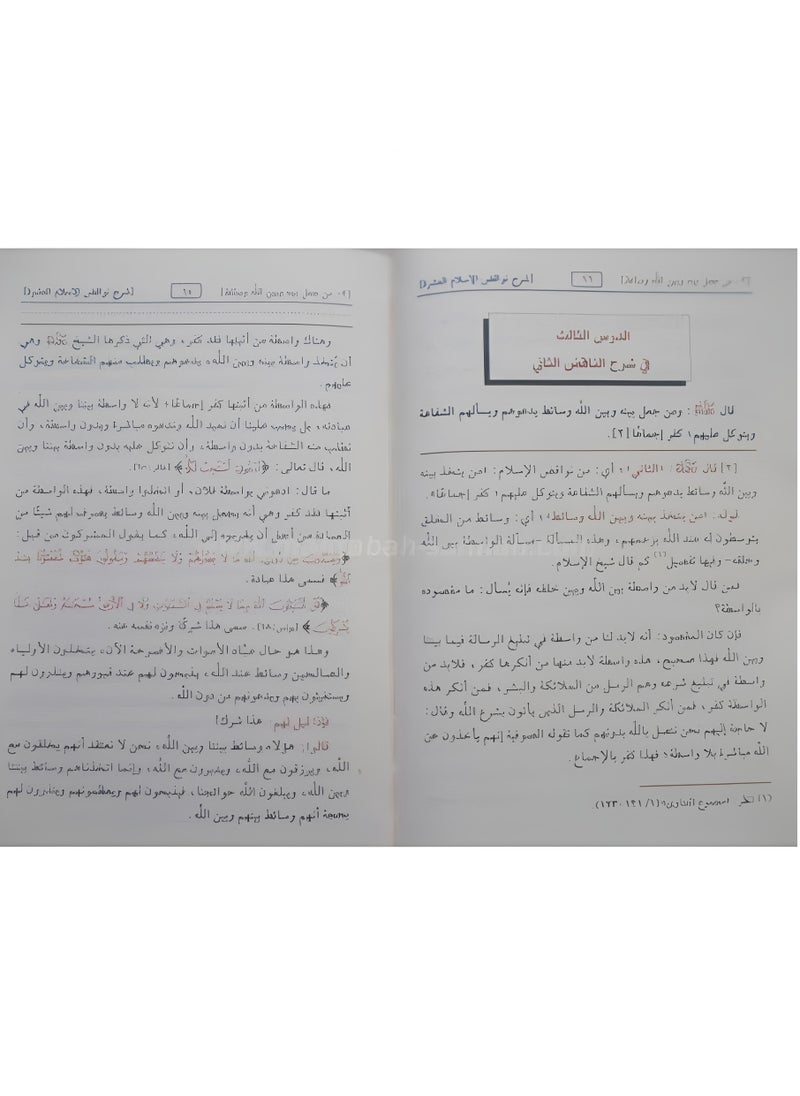 ٢- من جعل بينه وبين الله وسائط
٦٦
شرح نواقض الإسلام العشرة
الدرس الثالث
في شرح الناقض الثاني
قال رحمه الله: ومن جعل بينه وبين الله وسائط يدعوهم ويسألهم الشفاعة
ويتوكل عليهم؛ كفر إجماعًا [٢].
[٢] قال رحمه الله: «الثاني» أي: من نواقض الإسلام: «من يتخذ بينه
وبين الله وسائط يدعوهم ويسألهم الشفاعة ويتوكل عليهم؛ كفر إجماعًا».
قوله: «من يتخذ بينه وبين الله وسائط» أي: وسائط من الخلق
يتوسطون له عند الله بزعمهم، وهذه المسألة -مسألة الواسطة بين الله
وخلقه- وفيها تفصيل(١) كم قال شيخ الإسلام.
فمن قال لابد من واسطة بين الله وبين خلقه فإنه يُسأل: ما مقصوده
بالواسطة؟
فإن كان المقصود: أنه لابد لنا من واسطة في تبليغ الرسالة فيما بيننا
وبين الله فهذا صحيح، هذه واسطة لابد منها من أنكرها كفر، فلابد من
واسطة في تبليغ شرعه وهم الرسل من الملائكة والبشر، فمن أنكر هذه
الواسطة كفر، فمن أنكر الملائكة والرسل الذين يأتون بشرع الله وقال:
لا حاجة إليهم نحن نتصل بالله بدونهم كما تقوله الصوفية إنهم يأخذون عن
الله مباشرة بلا واسطة؛ فهذا كفر بالإجماع.
(١) انظر «مجموع الفتاوى» (١/ ١٢١- ١٢٣).
٢- من جعل بينه وبين الله وسائط
شرح نواقض الإسلام العشرة
وهناك واسطة من أثبتها فقد كفر، وهي التي ذكرها الشيخ رحمه الله وهي
أن يُتخذ واسطة بينه وبين الله، يدعوهم ويطلب منهم الشفاعة ويتوكل
عليهم.
فهذه الواسطة من أثبتها كفر إجماعًا؛ لأنه لا واسطة بيننا وبين الله في
عبادته، بل يجب علينا أن نعبد الله وندعوه مباشرة وبدون واسطة، وأن
نطلب منه الشفاعة بدون واسطة، وأن نتوكل عليه بدون واسطة بيننا وبين
الله، قال تعالى: ﴿ادْعُونِي أَسْتَجِبْ لَكُمْ﴾ [غافر: ٦٠].
ما قال: ادعوني بواسطة فلان، أو اتخذوا واسطة، فهذه الواسطة من
أثبتها فقد كفر وهي أنه يجعل بينه وبين الله وسائط يصرف لهم شيئًا من
العبادة من أجل أن يقربوه إلى الله، كما يقول المشركون من قبل:
﴿وَيَعْبُدُونَ مِنْ دُونِ اللَّهِ مَا لَا يَضُرُّهُمْ وَلَا يَنْفَعُهُمْ وَيَقُولُونَ هَؤُلَاءِ شُفَعَاؤُنَا عِنْدَ
اللَّهِ﴾ فسمى هذا عبادة.
﴿قُلْ أَتُنَبِّئُونَ اللَّهَ بِمَا لَا يَعْلَمُ فِي السَّمَاوَاتِ وَلَا فِي الْأَرْضِ سُبْحَانَهُ وَتَعَالَى عَمَّا
يُشْرِكُونَ﴾ [يونس: ١٨]. سمى هذا شركًا ونزه نفسه عنه.
وهذا هو حال عبَّاد الأموات والأضرحة الآن، يتخذون الأولياء
والصالحين وسائط عند الله، يذبحون لهم عند قبورهم وينذرون لهم
ويستغيثون بهم ويدعونهم من دون الله.
فإذا قيل لهم: هذا شرك!
قالوا: هؤلاء وسائط بيننا وبين الله، نحن لا نعتقد أنهم يخلقون مع
الله، ويرزقون مع الله، ويدبرون مع الله، وإنما اتخذناهم وسائط بيننا
وبين الله، ويبلغون الله حوائجنا، فيذبحون لهم وينذرون لهم
بحجة أنهم وسائط بينهم وبين الله.